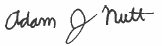 Adam J Nutt